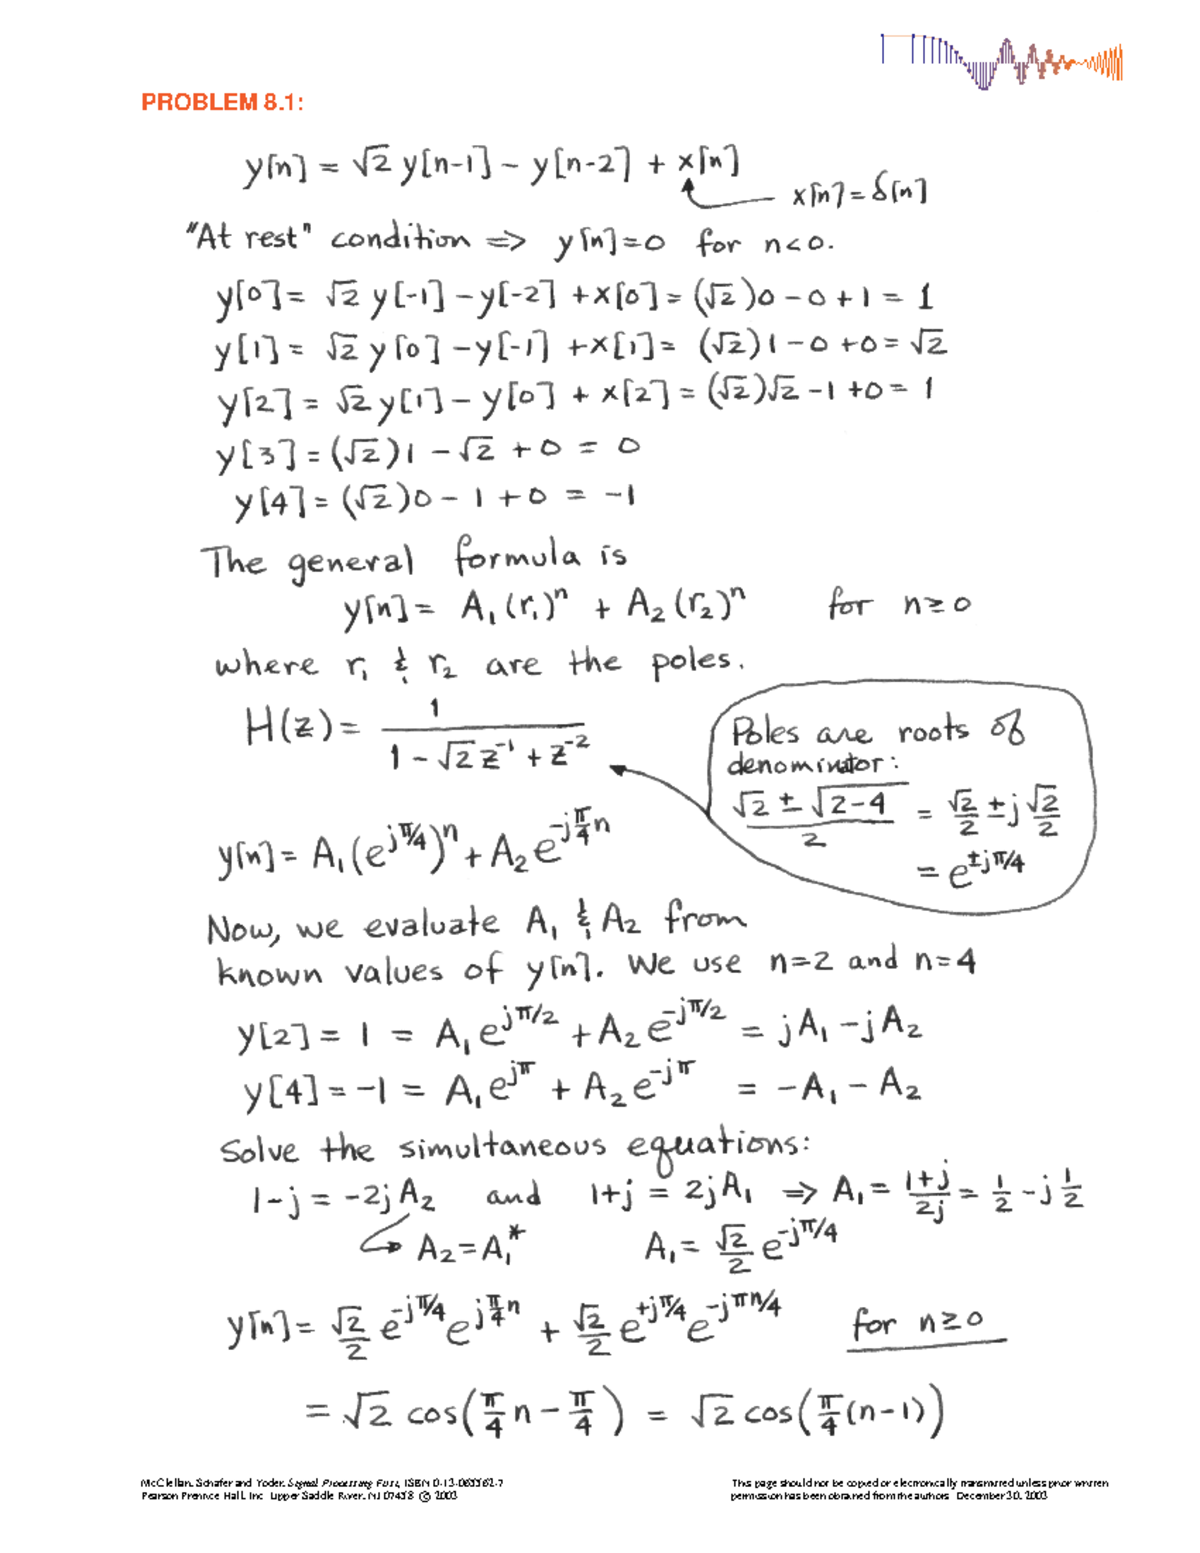 PROBLEM 8.1:
y[n] = √2 y[n-1] - y[n-2] + x[n]
x[n] = δ[n]
"At rest" condition ⇒ y[n]=0 for n<0.
y[0] = √2 y[-1] - y[-2] + x[0] = (√2)0 - 0 + 1 = 1
y[1] = √2 y[0] - y[-1] + x[1] = (√2)1 - 0 + 0 = √2
y[2] = √2 y[1] - y[0] + x[2] = (√2)√2 - 1 + 0 = 1
y[3] = (√2)1 - √2 + 0 = 0
y[4] = (√2)0 - 1 + 0 = -1
The general formula is
y[n] = A₁(r₁)ⁿ + A₂(r₂)ⁿ for n≥0
where r₁ & r₂ are the poles.
H(z) = 1 / (1 - √2 z⁻¹ + z⁻²)
Poles are roots of
denominator:
(√2 ± √(2-4)) / 2 = √2/2 ± j √2/2
= e^(±jπ/4)
y[n] = A₁(e^(jπ/4))ⁿ + A₂ e^(-jπ/4 n)
Now, we evaluate A₁ & A₂ from
known values of y[n]. We use n=2 and n=4
y[2] = 1 = A₁e^(jπ/2) + A₂e^(-jπ/2) = jA₁ - jA₂
y[4] = -1 = A₁e^(jπ) + A₂e^(-jπ) = -A₁ - A₂
Solve the simultaneous equations:
1-j = -2jA₂ and 1+j = 2jA₁ ⇒ A₁ = (1+j)/2j = 1/2 - j 1/2
A₂ = A₁* A₁ = √2/2 e^(-jπ/4)
y[n] = √2/2 e^(-jπ/4) e^(jπ/4 n) + √2/2 e^(+jπ/4) e^(-jπn/4) for n≥0
= √2 cos(π/4 n - π/4) = √2 cos(π/4 (n-1))
McClellan, Schafer and Yoder, Signal Processing First, ISBN 0-13-065562-7
Pearson Prentice Hall, Inc. Upper Saddle River, NJ 07458. © 2003
This page should not be copied or electronically transmitted unless prior written
permission has been obtained from the authors. December 30, 2003